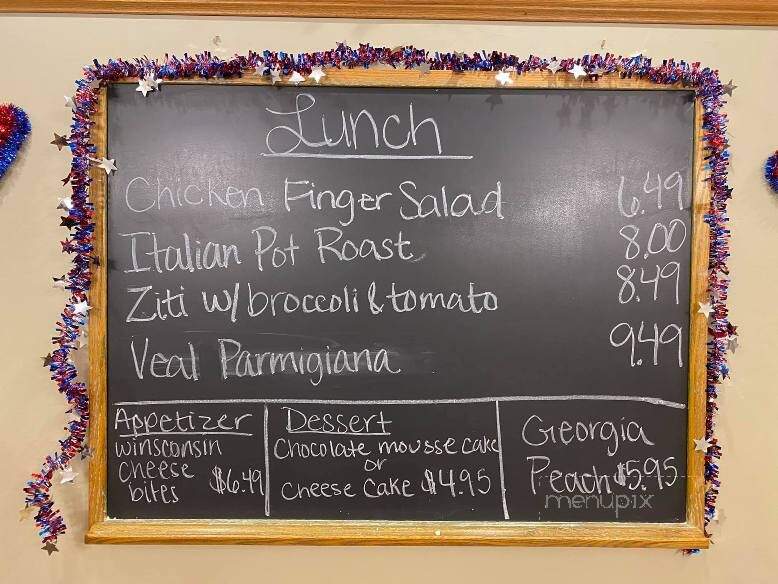 Lunch
Chicken Finger Salad 6.49
Italian Pot Roast 8.00
Ziti w/ broccoli & tomato 8.49
Veal Parmigiana 9.49
Appetizer
winsconsin
cheese
bites $6.49
Dessert
Chocolate mousse cake
or
cheese cake $4.95
Georgia
Peach $5.95
menupix